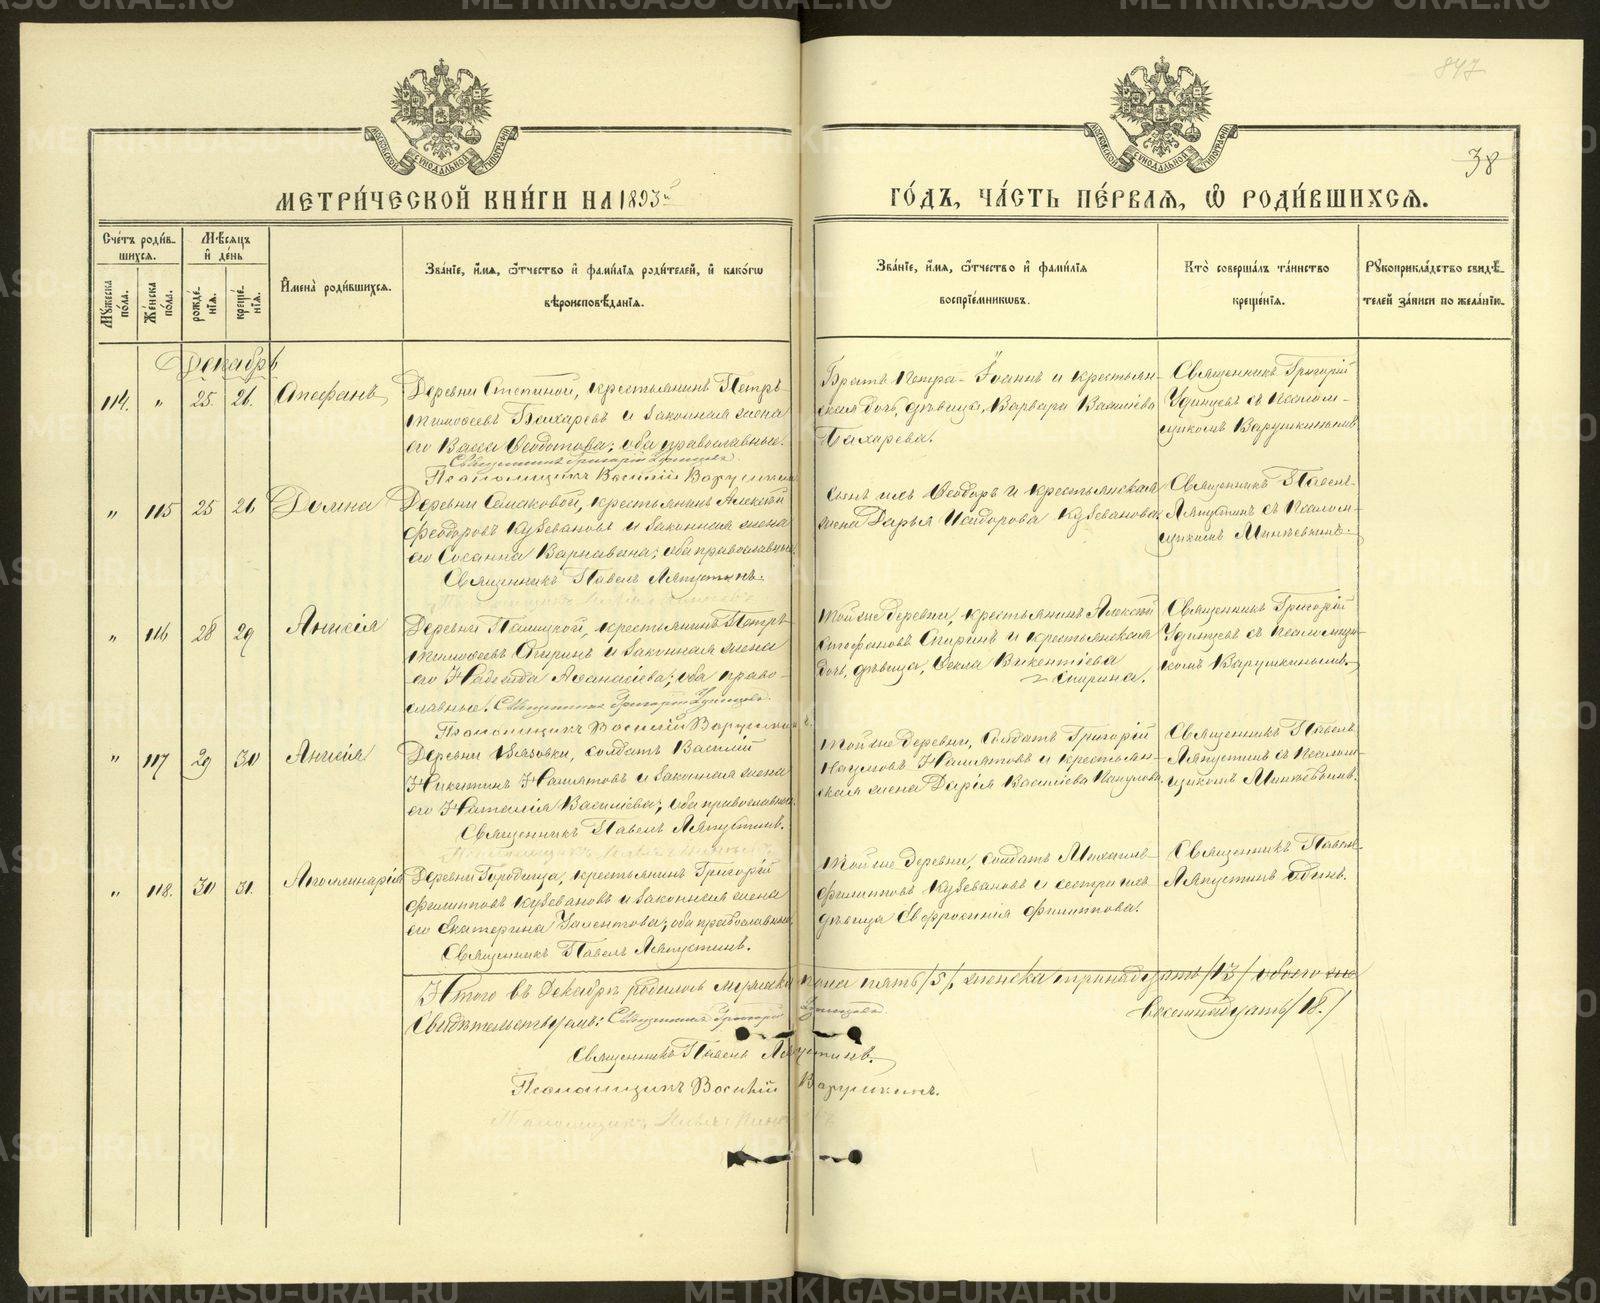 847
38
МОСКОВСКОЙ СѴНОДАЛЬНОЙ ТИПОГРАФІИ
МОСКОВСКОЙ СѴНОДАЛЬНОЙ ТИПОГРАФІИ
МЕТРИ́ЧЕСКОЙ КНИ́ГИ НА 1893й
ГО́ДЪ, ЧА́СТЬ ПЕ́РВАЯ, Ѡ РОДИ́ВШИХСЯ.
Сче́тъ роди́в-
шихся.
Мѣсяцъ
и҆ де́нь
Мꙋ́жеска по́ла.
Же́нска по́ла.
рожде́-
нїя.
креще́-
нїя.
И҆мена̀ роди́вшихся.
Зва́нїе, и҆́мя, ѻ҆́тчество и҆ фами́лїя роди́телей, и҆ како́гѡ
вѣроисповѣ́данїя.
Зва́нїе, и҆́мя, ѻ҆́тчество и҆ фами́лїя
воспрїе́мниковъ.
Кто̀ соверша́лъ та́инство
креще́нїя.
Рꙋкоприкла́дство свидѣ́-
телей за́писи по жела́нїю.
Декабрь
114. " 25. 26. Стефанъ
Деревни Степиной, крестьянинъ Петръ
Тимофеевъ Бахаревъ и законная жена
его Васса Ѳеодотова; оба православные.
Священникъ Григорій Удинцевъ.
Псаломщикъ Василій Варушкинъ
Братъ Петра - Іоаннъ и крестьян-
ская дочь, дѣвица, Варвара Васильева
Бахарева.
Священникъ Григорій
Удинцевъ съ псалом-
щикомъ Варушкинымъ
" 115 25 26 Домна
Деревни Симаковой, крестьянинъ Алексѣй
Феодоровъ Кузеванов и законная жена
его Сосанна Варнавина; оба православные.
Священникъ Павелъ Ляпустинъ.
сынъ ихъ Ѳеодоръ и крестьянская
жена Дарья Исидорова Кузеванова.
Священникъ Павелъ
Ляпустинъ съ псалом-
щикомъ
" 116 28 29 Анисія
Деревни крестьянинъ Петръ
Тимофеевъ Спиринъ и законная жена
его Надежда Аѳанасіева; оба право-
славные. Священникъ Григорій Удинцевъ.
Псаломщикъ Василій Варушкинъ.
Той же деревни, крестьянинъ Алексѣй
Стефановъ Спиринъ и крестьянская
дочь, дѣвица, Ѳекла Викентіева
Спирина.
Священникъ Григорій
Удинцевъ съ псаломщи-
комъ Варушкинымъ.
" 117 29 30 Анисія
Деревни солдатъ Василій
Никитинъ и законная жена
его Наталія Василіева; оба православные.
Священникъ Павелъ Ляпустинъ.
Той же деревни, солдатъ Григорій
Наумовъ и крестьян-
ская жена Дарія Василіева
Священникъ Павелъ
Ляпустинъ съ псалом-
щикомъ
" 118. 30 31. Аполлинарія
Деревни Городища, крестьянинъ Григорій
Филипповъ Кузевановъ и законная жена
его Екатерина оба православные.
Священникъ Павелъ Ляпустинъ.
Той же деревни, солдатъ Михаилъ
Филипповъ Кузевановъ и сестра ихъ
дѣвица Евфросинія Филиппова.
Священникъ Павелъ
Ляпустинъ одинъ.
Итого въ Декабрѣ родилось мужеска пола пять /5/, женска тринадцать /13/ обоего же
восемнадцать /18./
Свидѣтельствуемъ: Священникъ Григорій Удинцевъ.
Священникъ Павелъ Ляпустинъ.
Псаломщикъ Василій Варушкинъ.
METRIKI.GASO-URAL.RU